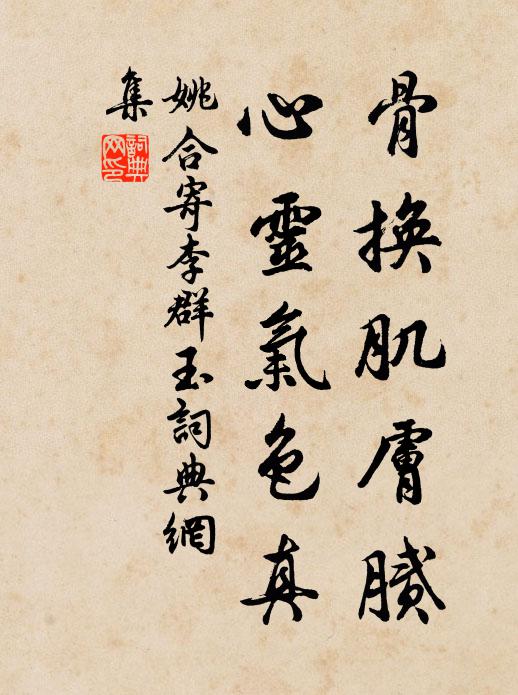 骨換肌膚膩
心靈氣色真
姚合寄李群玉詞典網
集
詞典
网印